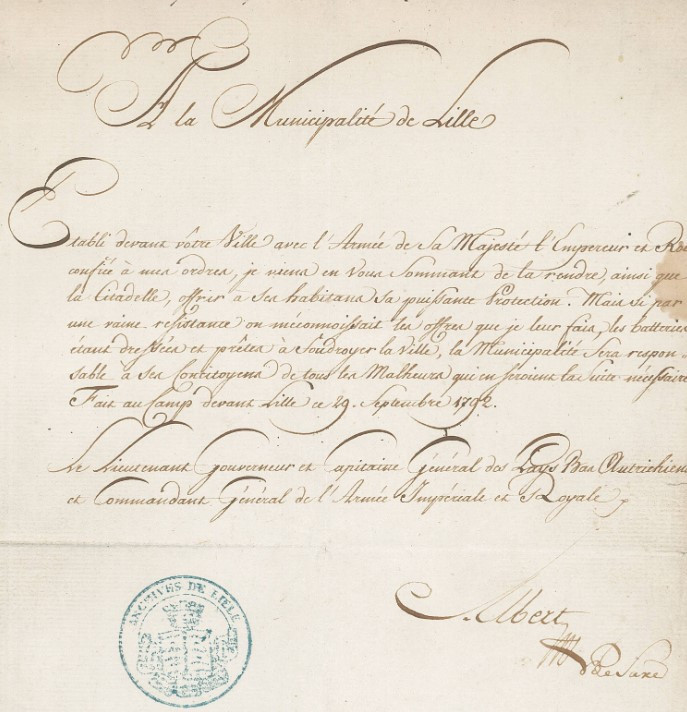 A la Municipalité de Lille
Etabli devant vôtre Ville avec l'Armée de Sa Majesté l'Empereur et Roi
confiée à mes ordres, je viens en Vous Sommant de la rendre, ainsi que
la Citadelle, offrir à Ses habitans Sa puissante Protection. Mais si par
une vaine resistance on méconnoissait les offres que je leur fais, les batteries
étant dressées et prêtes à foudroyer la Ville, la Municipalité Sera respon
sable à Ses Concitoyens de tous les Malheurs qui en seroient la suite nécessaire
Fait au Camp devant Lille ce 29. Septembre 1792.
Le Lieutenant Gouverneur et Capitaine Général des Pays Bas Autrichiens
et Commandant Général de l'Armée Impériale et Royale
Albert
de Saxe
ARCHIVES DE LILLE